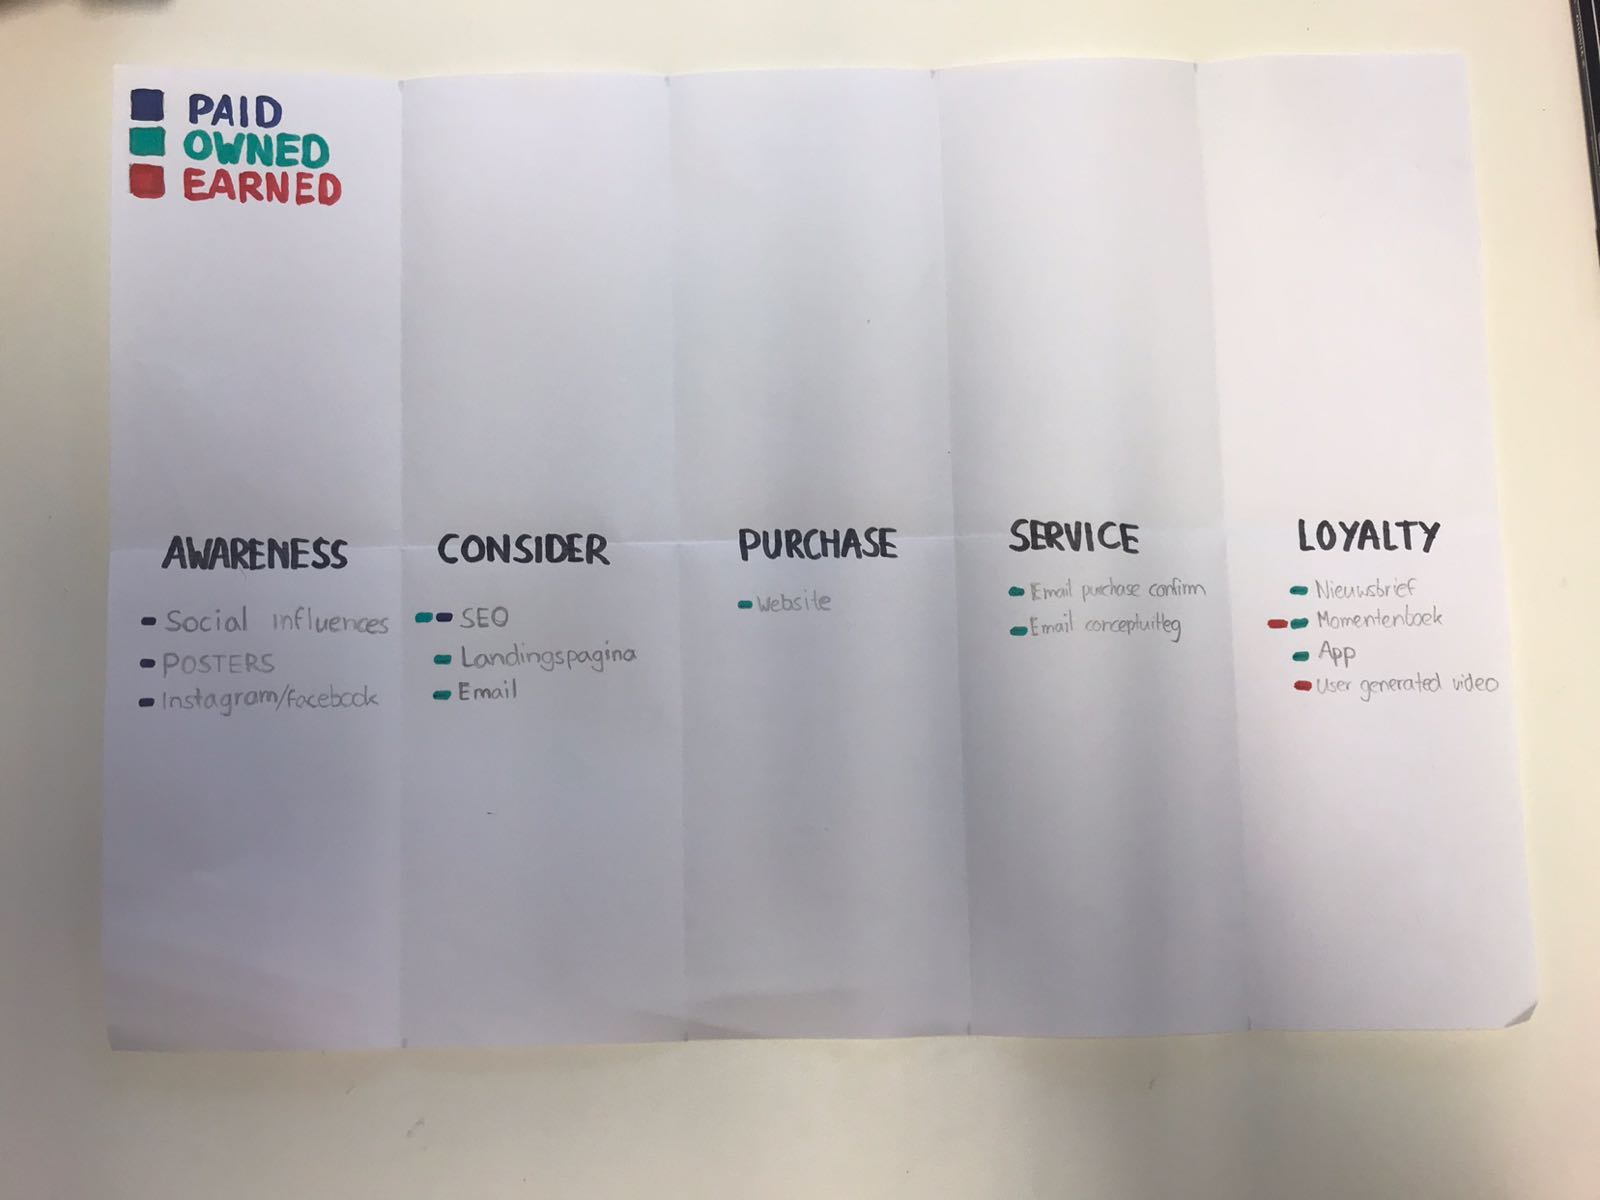 PAID
OWNED
EARNED
AWARENESS
Social influences
POSTERS
Instagram/facebook
CONSIDER
SEO
Landingspagina
Email
PURCHASE
Website
SERVICE
Email purchase confirm
Email conceptuitleg
LOYALTY
Nieuwsbrief
Momentenboek
App
User generated video